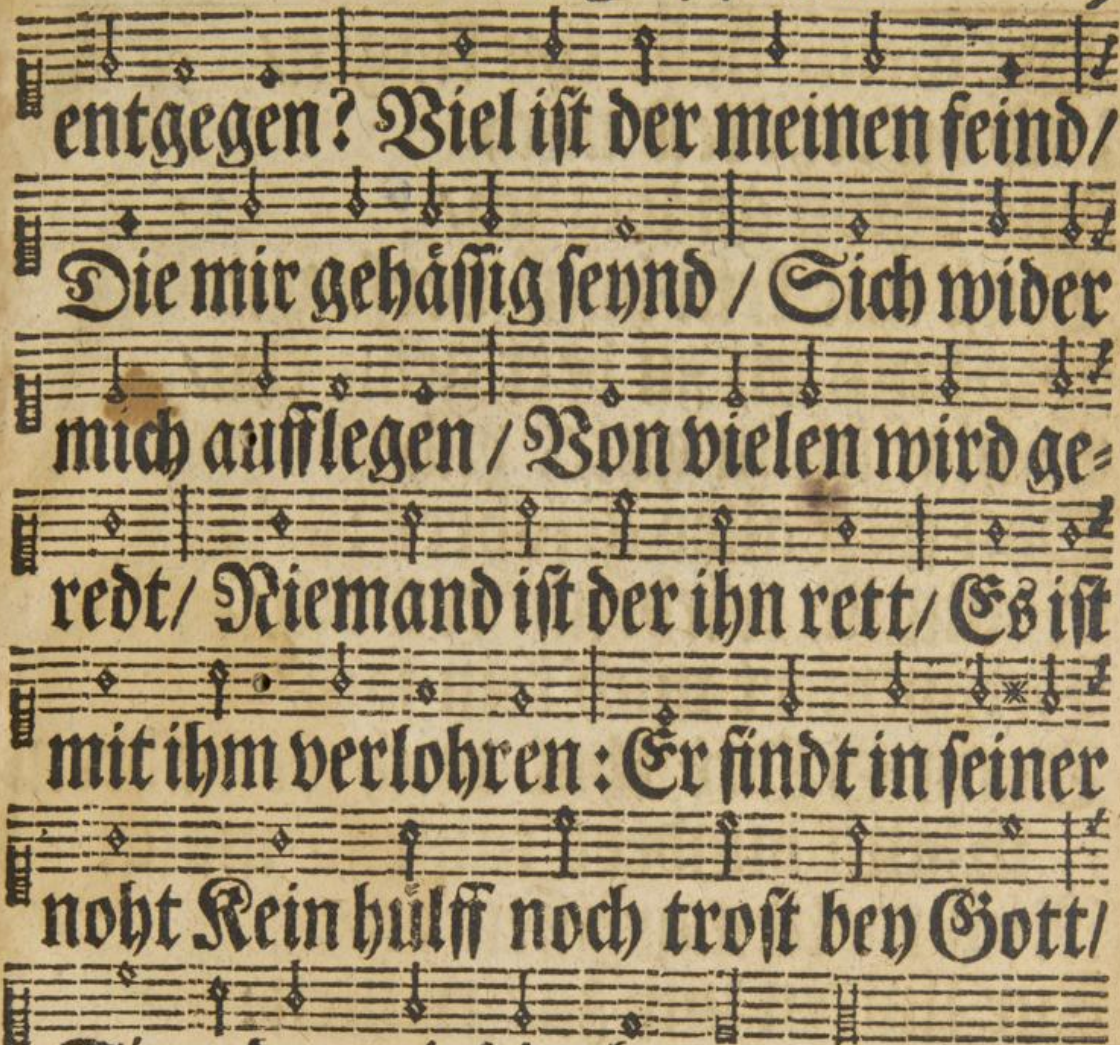 entgegen? Viel ist der meinen feind/
Die mir gehässig seynd / Sich wider
mich aufflegen / Von vielen wird ge⸗
redt/ Niemand ist der ihn rett/ Es ist
mit ihm verlohren: Er findt in seiner
noht Kein hülff noch trost bey Gott/